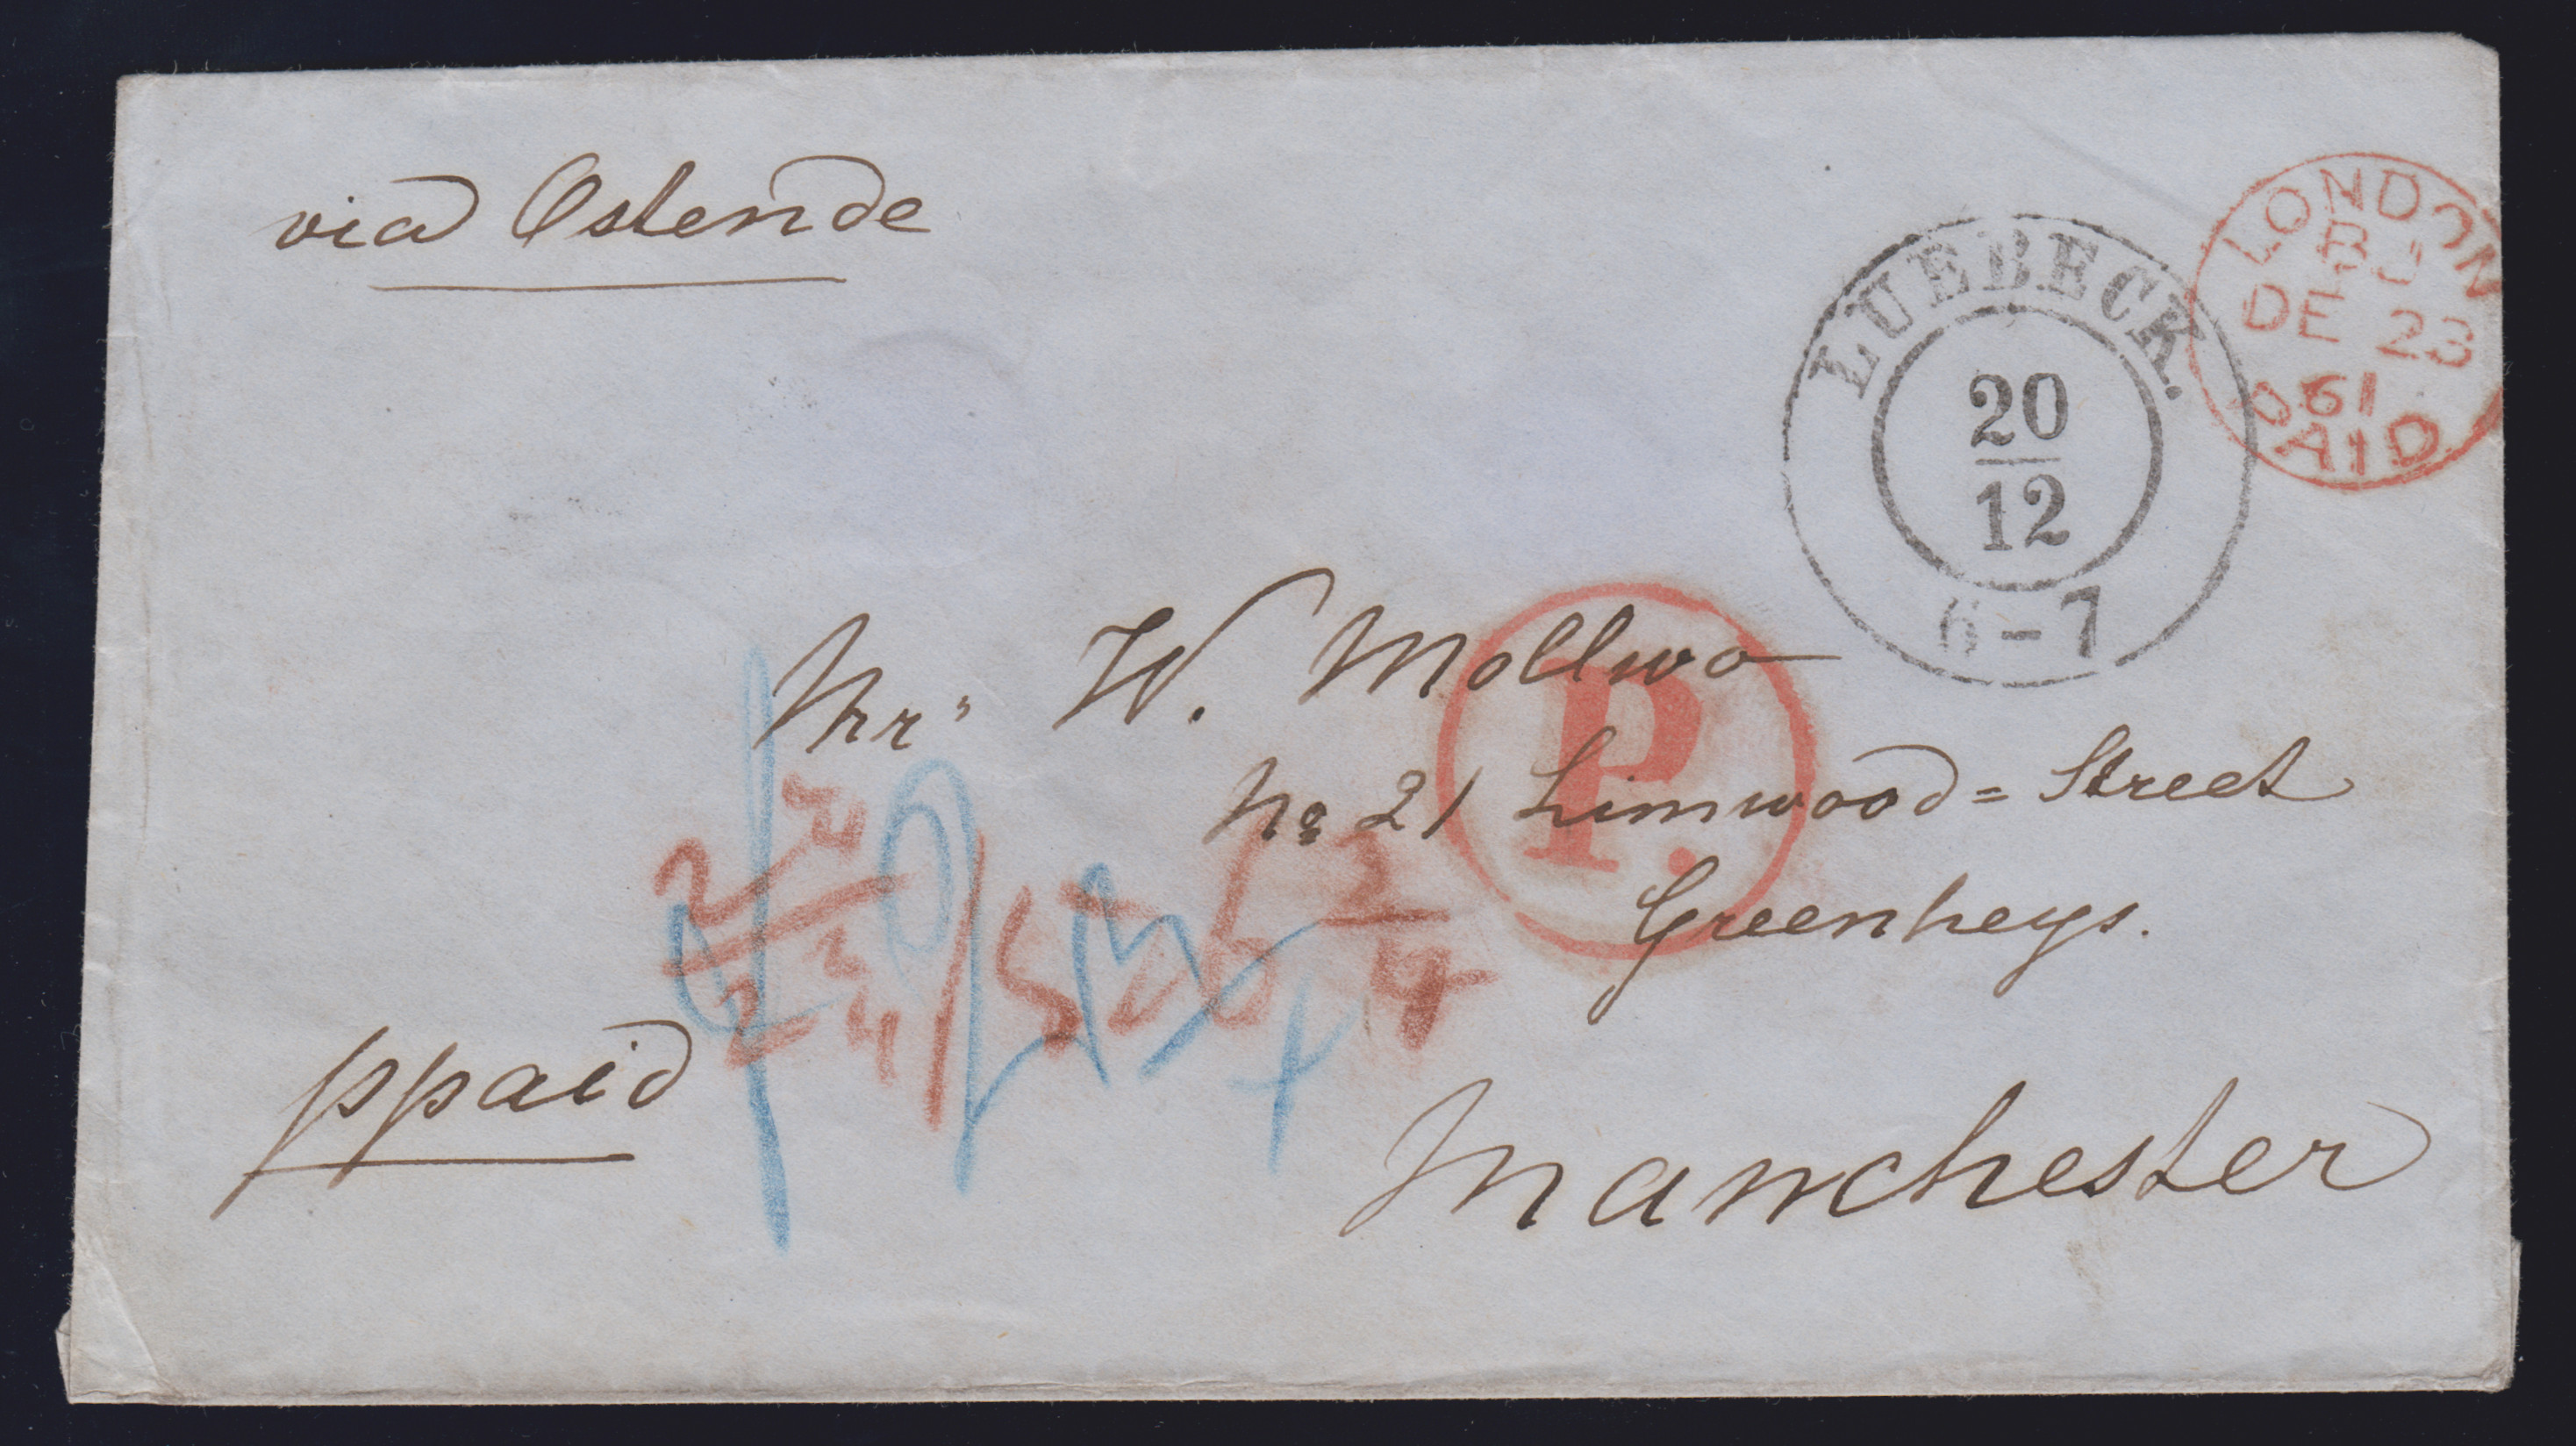 via Ostende
LUEBECK.
20
12
6-7
LONDON
BJ
DE 23
61
PAID
P.
Mr. W. Mollwo
No 21 Limwood = Street
Greenheys.
ppaid
Manchester